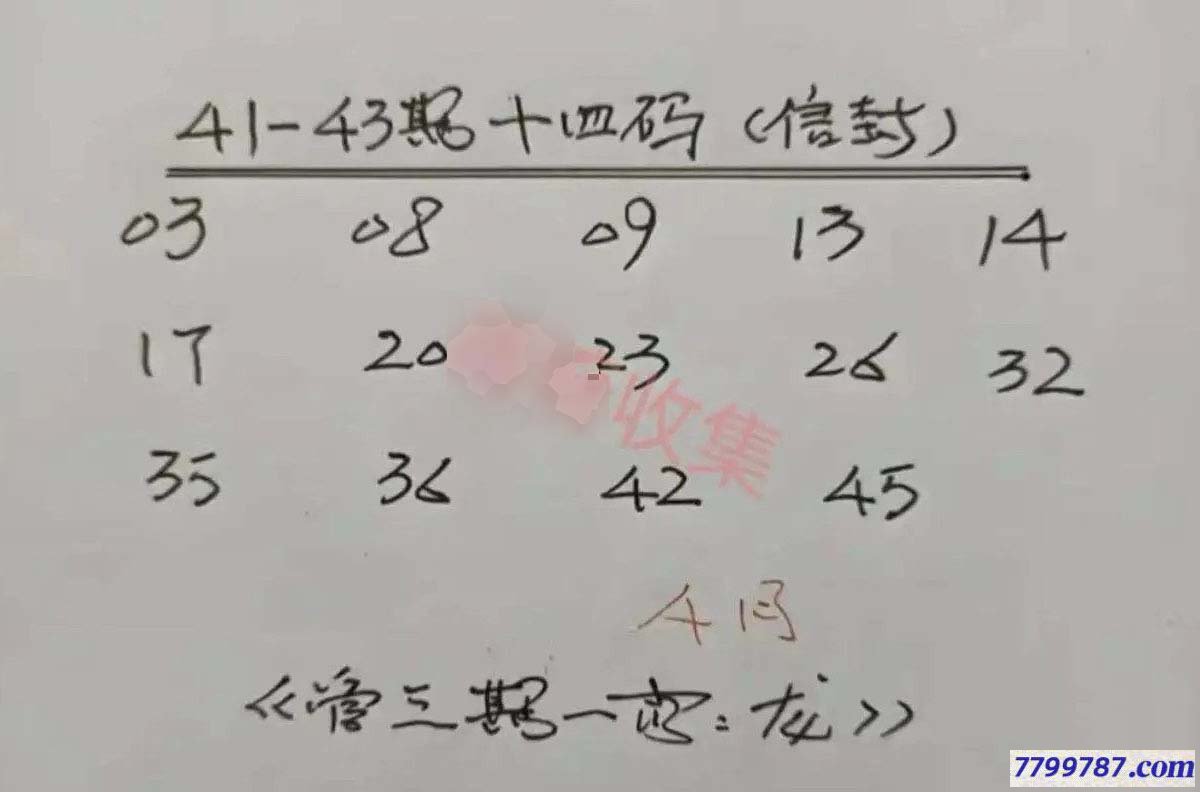 41-43期十四码(信封)
03 08 09 13 14
17 20 23 26 32
收集
35 36 42 45
4月
《管三期一肖:龙》
7799787.com